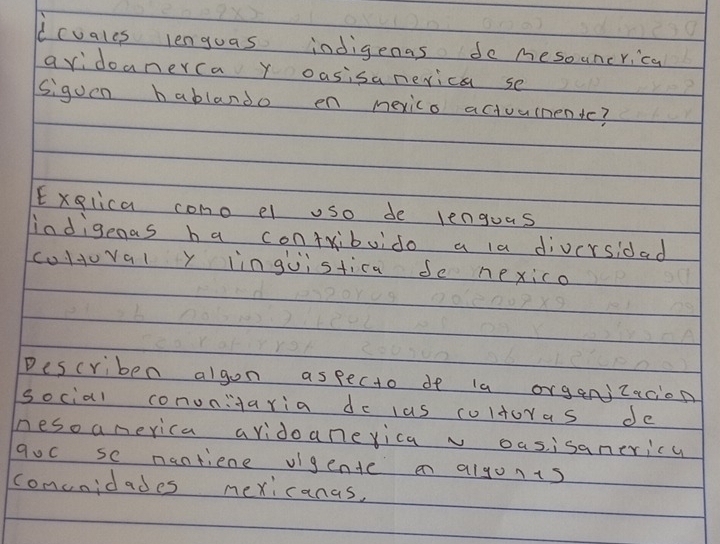 ¿cuales lenguas indigenas de mesoamerica
aridoamerca y oasisamerica se
siguen hablando en mexico actualmente?
Explica como el uso de lenguas
indigenas ha contribuido a la diversidad
cultural y lingüistica de mexico
Describen algun aspecto de la organizacion
social comunitaria de las culturas de
mesoamerica aridoamerica y oasisamerica
que se mantiene vigente en algunas
comunidades mexicanas.